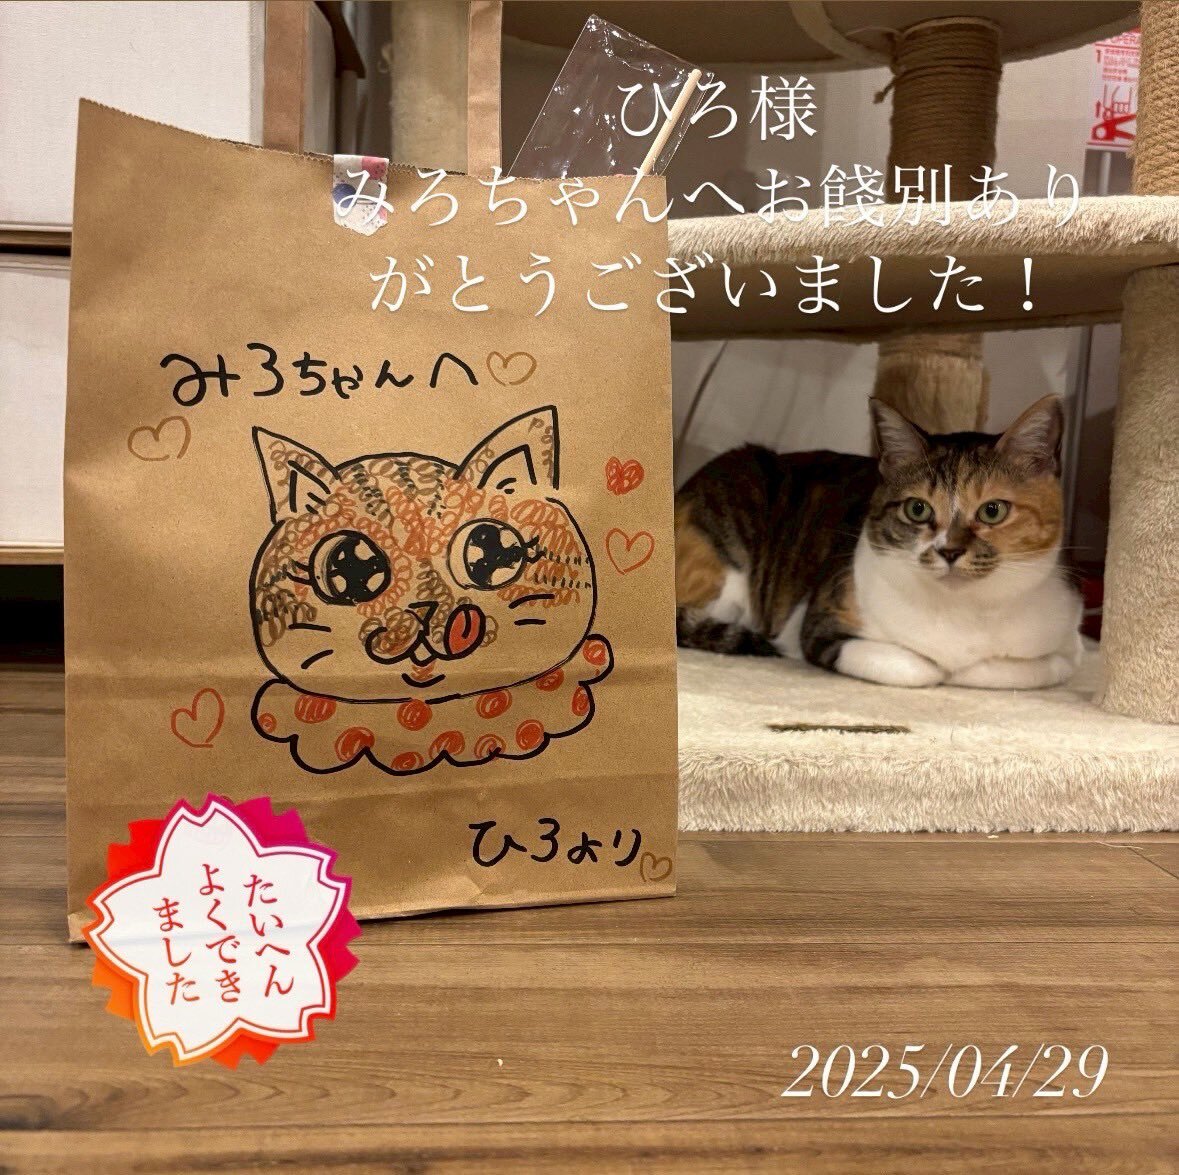 ひろ様
みろちゃんへお餞別あり
がとうございました！
みろちゃんへ
ひろより
たいへん
よくでき
ました
2025/04/29